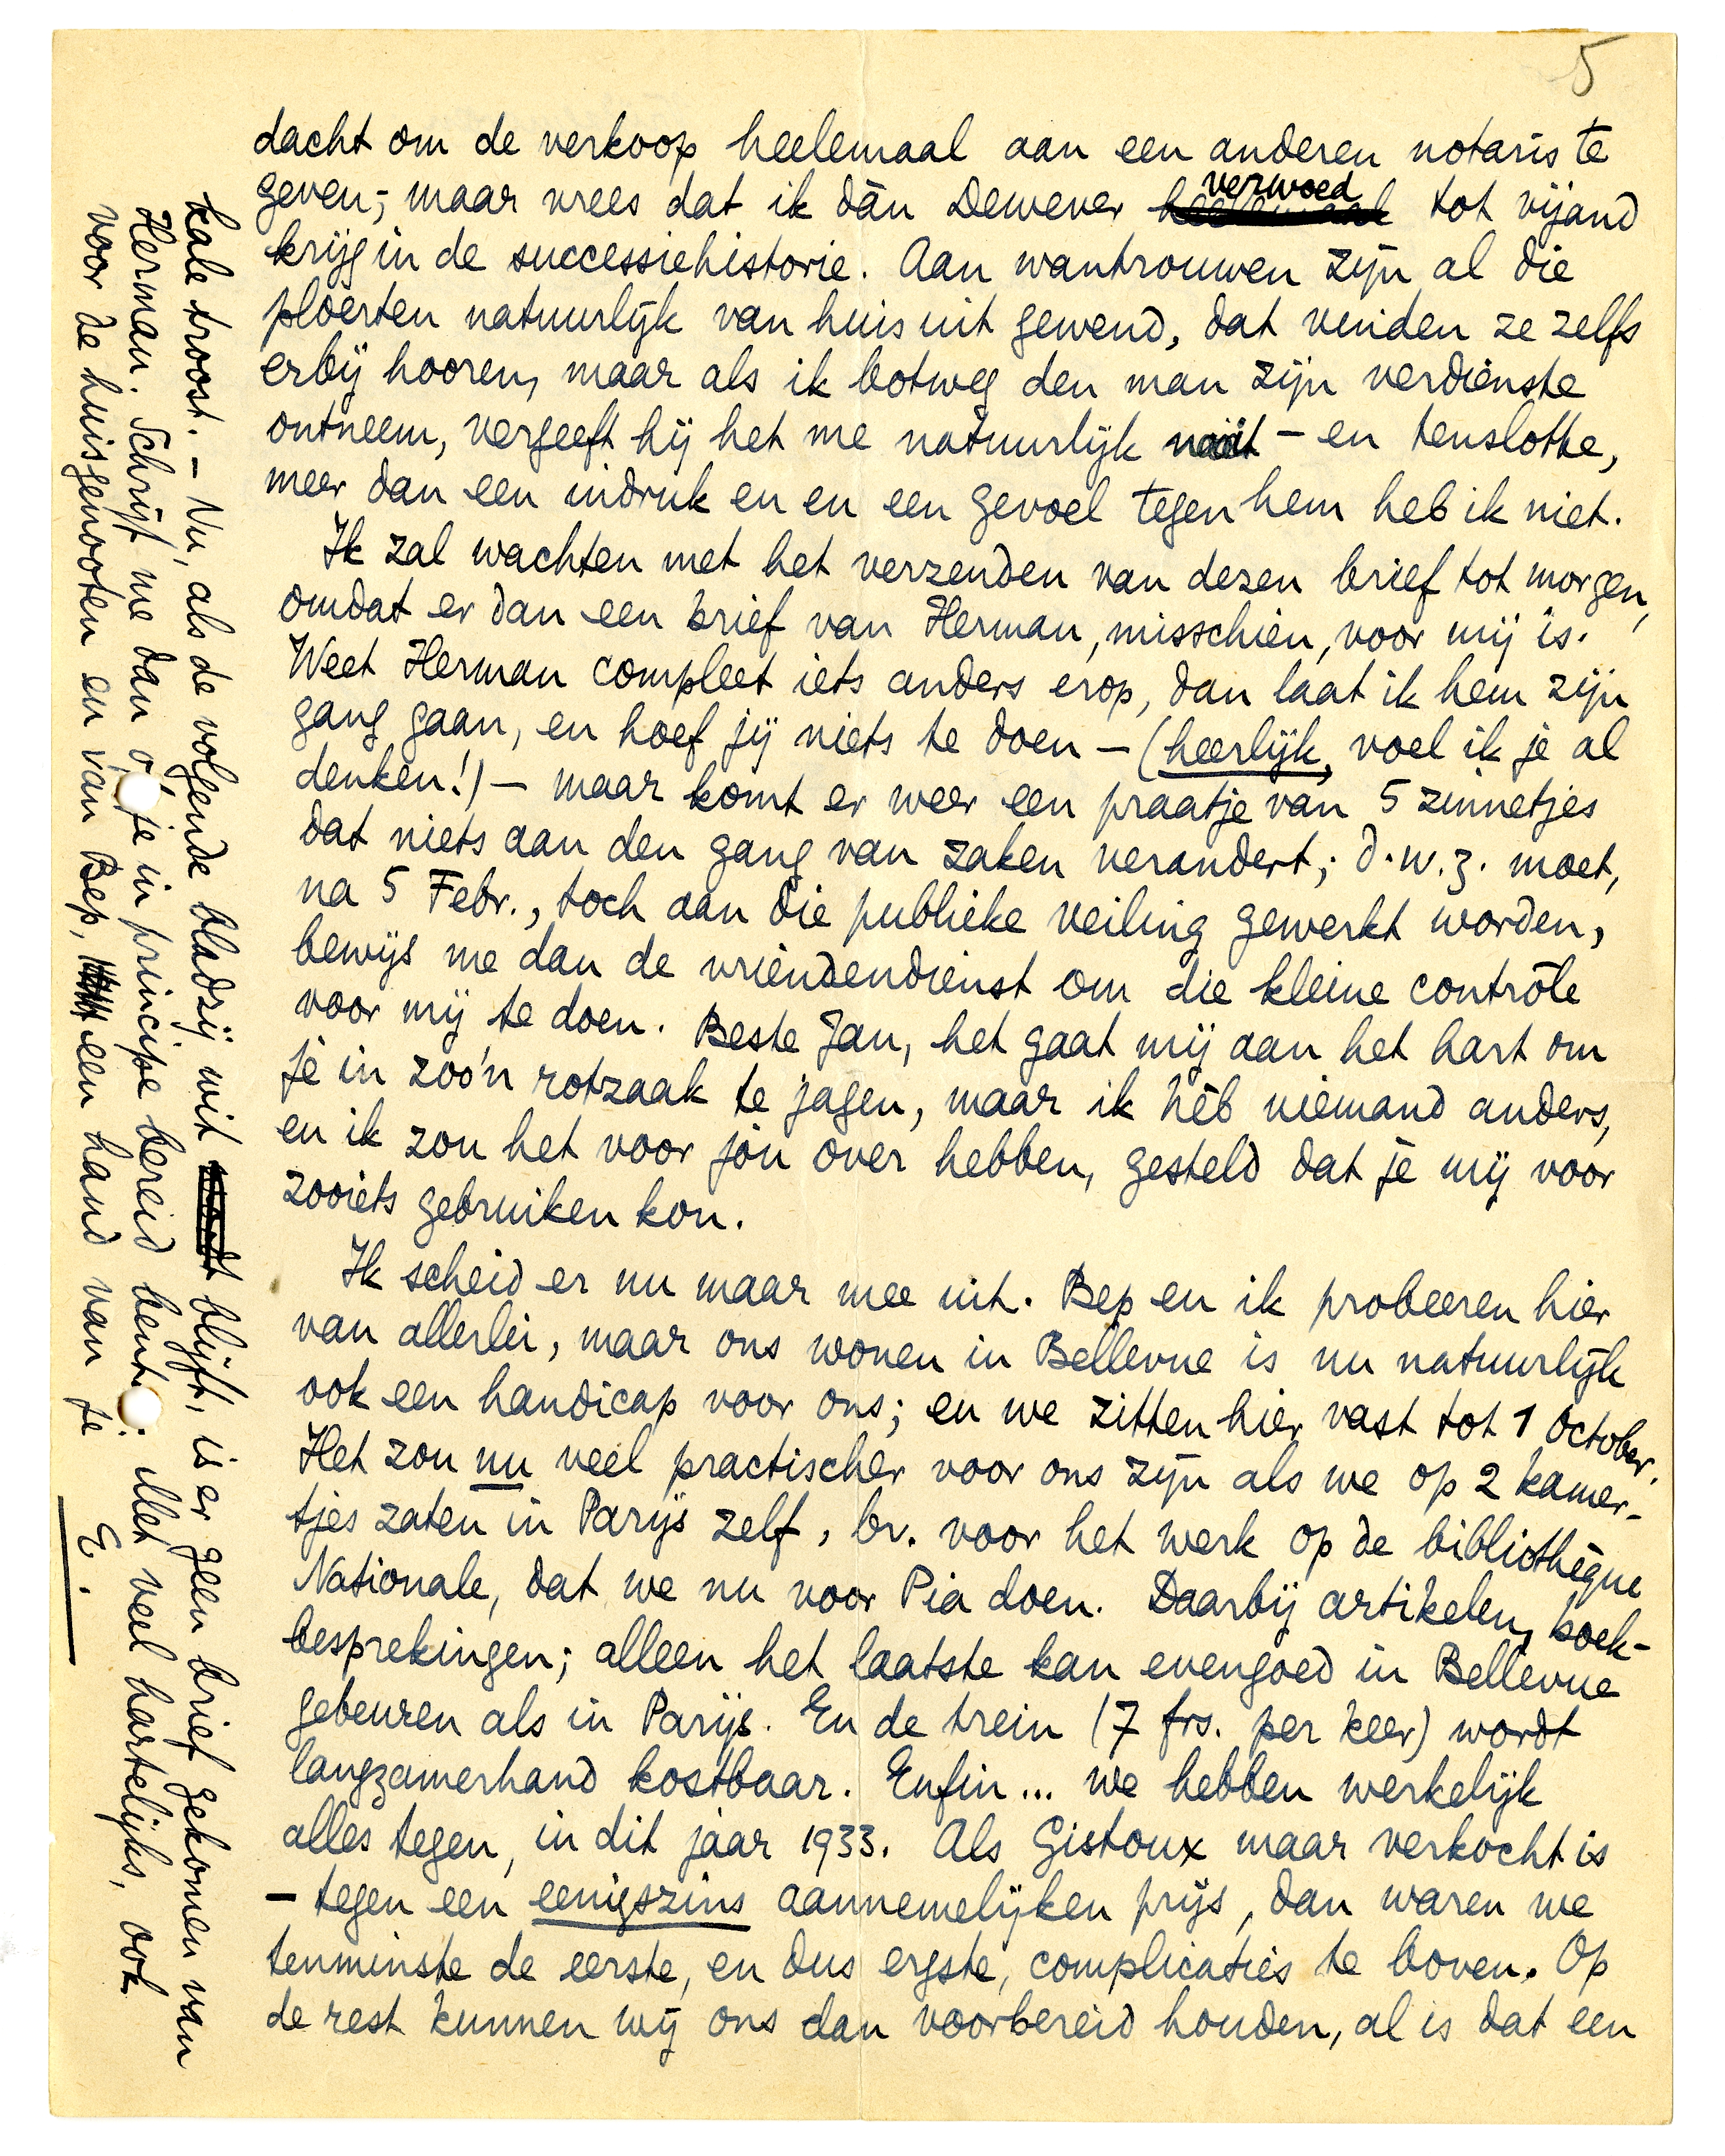 5
dacht om de verkoop heelemaal aan een anderen notaris te
geven; maar vrees dat ik dàn Dewever verwoed tot vijand
krijg in de successiehistorie. Aan wantrouwen zijn al die
ploerten natuurlijk van huis uit gewend, dat vinden ze zelfs
erbij hooren, maar als ik botweg den man zijn verdienste
ontneem, vergeeft hij het me natuurlijk nooit – en tenslotte,
meer dan een indruk en en een gevoel tegen hem heb ik niet.
Ik zal wachten met het verzenden van dezen brief tot morgen,
omdat er dan een brief van Herman, misschien, voor mij is.
Weet Herman compleet iets anders erop, dan laat ik hem zijn
gang gaan, en hoef jij niets te doen – (heerlijk, voel ik je al
denken!) – maar komt er weer een praatje van 5 zinnetjes
dat niets aan den gang van zaken verandert; d.w.z. moet,
na 5 Febr., toch aan die publieke veiling gewerkt worden,
bewijs me dan de vriendendienst om die kleine contrôle
voor mij te doen. Beste Jan, het gaat mij aan het hart om
je in zoo'n rotzaak te jagen, maar ik hèb niemand anders,
en ik zou het voor jóu over hebben, gesteld dat je mij voor
zooiets gebruiken kon.
Ik scheid er nu maar mee uit. Bep en ik probeeren hier
van allerlei, maar ons wonen in Bellevue is nu natuurlijk
ook een handicap voor ons; en we zitten hier vast tot 1 October.
Het zou nu veel practischer voor ons zijn als we op 2 kamer-
tjes zaten in Parijs zelf, bv. voor het werk op de bibliothèque
Nationale, dat we nu voor Pia doen. Daarbij artikelen, boek-
besprekingen; alleen het laatste kan evengoed in Bellevue
gebeuren als in Parijs. En de trein (7 frs. per keer) wordt
langzamerhand kostbaar. Enfin... we hebben werkelijk
alles tegen, in dit jaar 1933. Als Gistoux maar verkocht is
– tegen een eenigszins aannemelijken prijs, dan waren we
tenminste de eerste, en dus ergste, complicaties te boven. Op
de rest kunnen wij ons dan voorbereid houden, al is dat een
kale troost. – Nu, als de volgende bladzij wit blijft, is er geen brief gekomen van
Herman. Schrijf me dan of je in principe bereid bent. Met veel hartelijks, ook
voor de huisgenooten en van Bep, een hand van je
E.